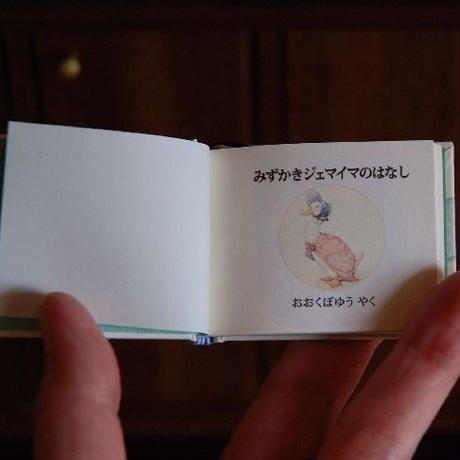 みずかきジェマイマのはなし
おおくぼゆう やく